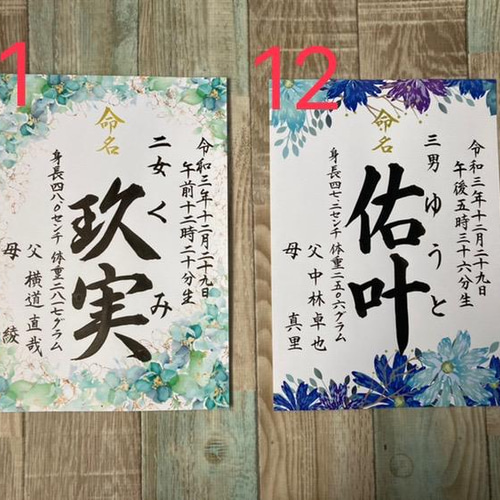 1
命名
令和三年十二月二十九日
午前十二時二十分生
二女 くみ
玖実
身長四八.〇センチ 体重二八一七グラム
父 横道直哉
母 綾
12
命名
令和三年十二月二十九日
午後五時三十六分生
三男 ゆうと
佑叶
身長四七.二センチ 体重二五〇六グラム
父 中林卓也
母 真里